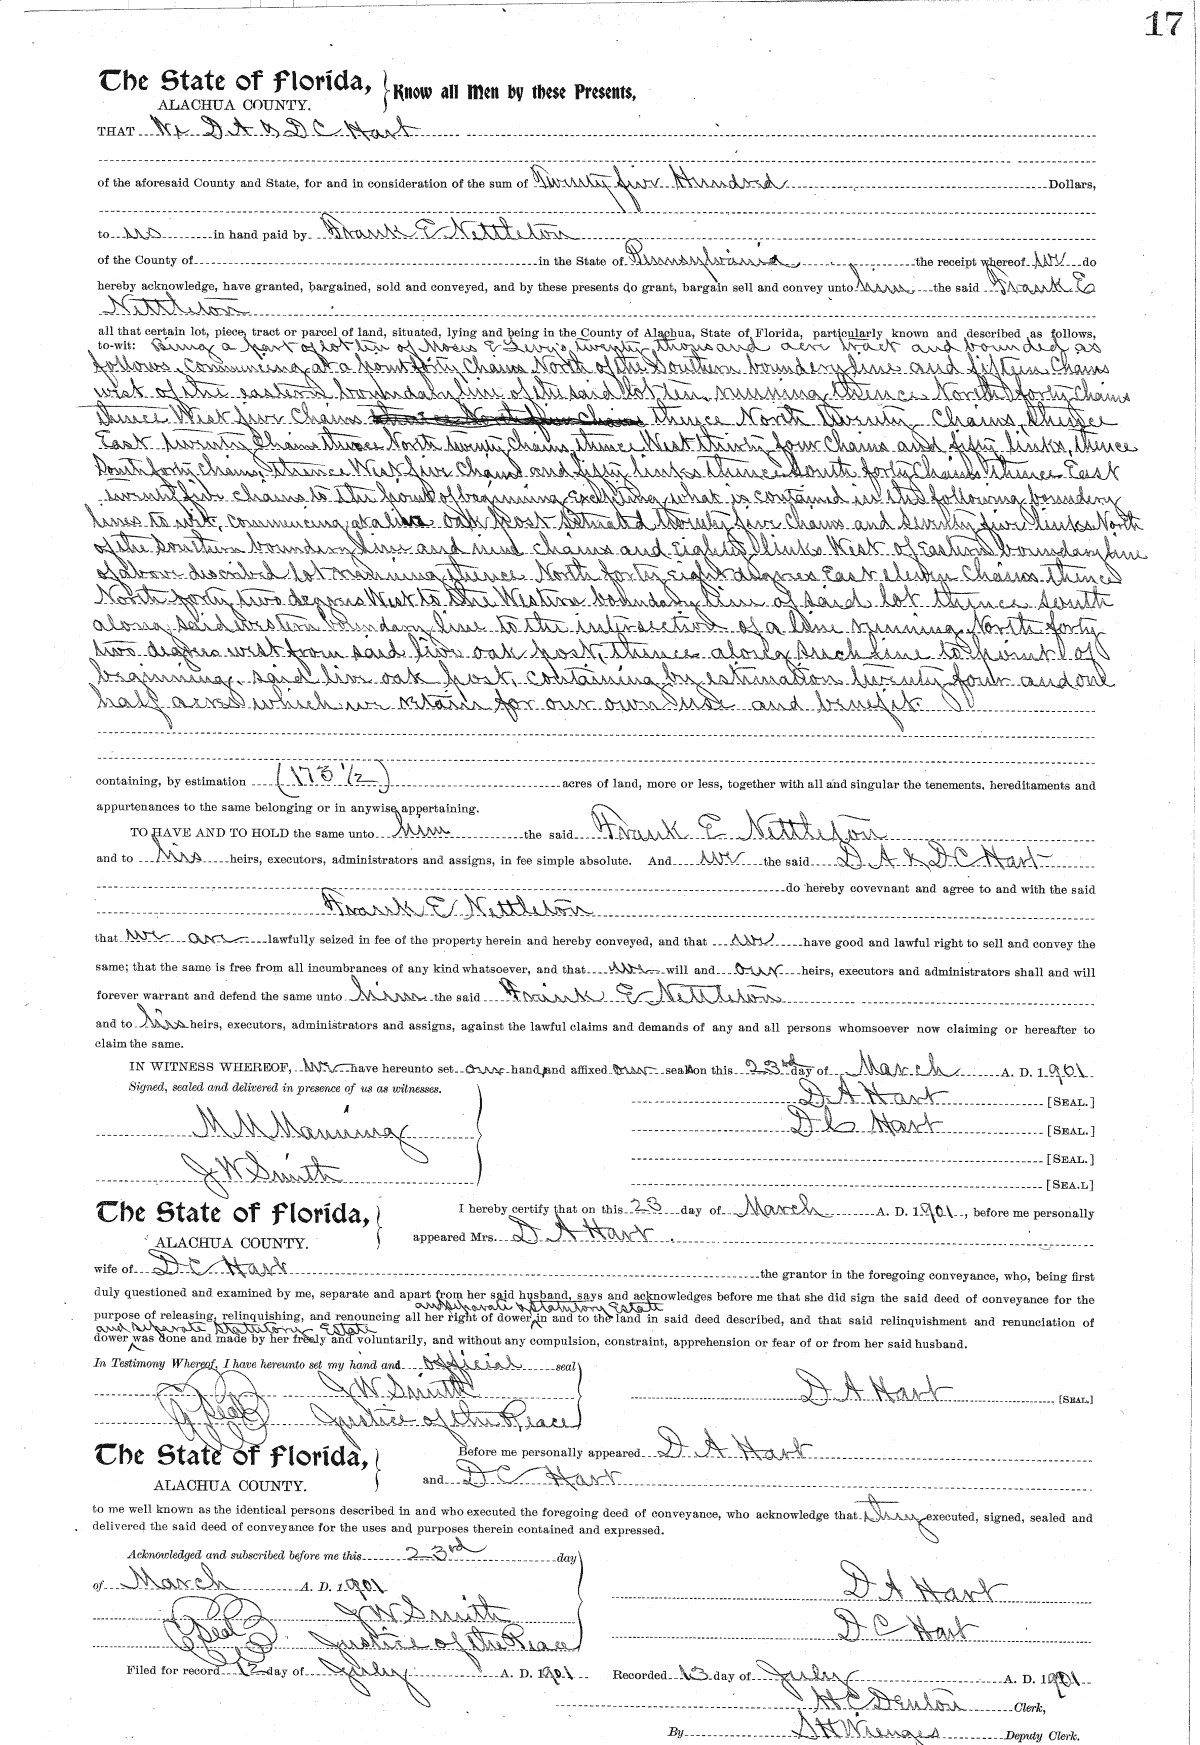 17
The State of Florida, Know all Men by these Presents,
ALACHUA COUNTY.
THAT We D A & D C Hart
of the aforesaid County and State, for and in consideration of the sum of Twenty five Hundred Dollars,
to us in hand paid by Frank E Nettleton
of the County of in the State of Pennsylvania the receipt whereof we do
hereby acknowledge, have granted, bargained, sold and conveyed, and by these presents do grant, bargain sell and convey unto him the said Frank E
Nettleton
all that certain lot, piece, tract or parcel of land, situated, lying and being in the County of Alachua, State of Florida, particularly known and described as follows,
to-wit: Being a part of lot ten of Moses E Levy's twenty thousand acre tract and bounded as
follows, commencing at a point forty chains North of the Southern boundery line and fifteen Chains
west of the eastern boundary line of the said lot ten, running thence North forty Chains
thence West five Chains thence North five Chains thence North Twenty Chains, thence
East twenty Chains thence North twenty Chains, thence West thirty four Chains and fifty links, thence
South forty chains, thence West five Chains and fifty links thence South forty Chains thence East
twenty five chains to the point of beginning, Excepting what is contained in the following boundery
lines to wit, commencing at a live oak post setuated twenty five Chains and seventy five links North
of the Southern boundery line and nine chains and Eighty links West of Eastern boundary line
of above described lot running thence North forty eight degrees East eleven Chains thence
North forty two degrees West to the Western boundary line of said lot thence South
along said western boundary line to the intersection of a line running North forty
two degrees west from said live oak post, thence along such line to point of
beginning, said live oak post, containing by estimation twenty four and one
half acres which we retain for our own use and benefit.
containing, by estimation (173 1/2) acres of land, more or less, together with all and singular the tenements, hereditaments and
appurtenances to the same belonging or in anywise appertaining.
TO HAVE AND TO HOLD the same unto him the said Frank E Nettleton
and to his heirs, executors, administrators and assigns, in fee simple absolute. And we the said D A & D C Hart
do hereby covevnant and agree to and with the said
Frank E Nettleton
that we are lawfully seized in fee of the property herein and hereby conveyed, and that we have good and lawful right to sell and convey the
same; that the same is free from all incumbrances of any kind whatsoever, and that we will and our heirs, executors and administrators shall and will
forever warrant and defend the same unto him the said Frank E Nettleton
and to his heirs, executors, administrators and assigns, against the lawful claims and demands of any and all persons whomsoever now claiming or hereafter to
claim the same.
IN WITNESS WHEREOF, we have hereunto set our hand and affixed our seal on this 23rd day of March A. D. 1901
Signed, sealed and delivered in presence of us as witnesses. D A Hart [SEAL.]
M M Manning D C Hart [SEAL.]
[SEAL.]
J W Smith [SEA.L]
The State of Florida, I hereby certify that on this 23 day of March A. D. 1901, before me personally
ALACHUA COUNTY. appeared Mrs. D A Hart
wife of D C Hart the grantor in the foregoing conveyance, who, being first
duly questioned and examined by me, separate and apart from her said husband, says and acknowledges before me that she did sign the said deed of conveyance for the
and separate & Statutory Estate
purpose of releasing, relinquishing, and renouncing all her right of dower in and to the land in said deed described, and that said relinquishment and renunciation of
and separate Statutory Estate
dower was done and made by her freely and voluntarily, and without any compulsion, constraint, apprehension or fear of or from her said husband.
In Testimony Whereof, I have hereunto set my hand and official seal
J W Smith D A Hart [SEAL]
Seal Justice of the Peace
The State of Florida, Before me personally appeared D A Hart
ALACHUA COUNTY. and D C Hart
to me well known as the identical persons described in and who executed the foregoing deed of conveyance, who acknowledge that they executed, signed, sealed and
delivered the said deed of conveyance for the uses and purposes therein contained and expressed.
Acknowledged and subscribed before me this 23rd day
of March A. D. 1901 D A Hart
J W Smith D C Hart
Seal Justice of the Peace
Filed for record 12 day of July A. D. 1901 Recorded 13 day of July A. D. 1901
H C Denton Clerk,
By S H Wienges Deputy Clerk.